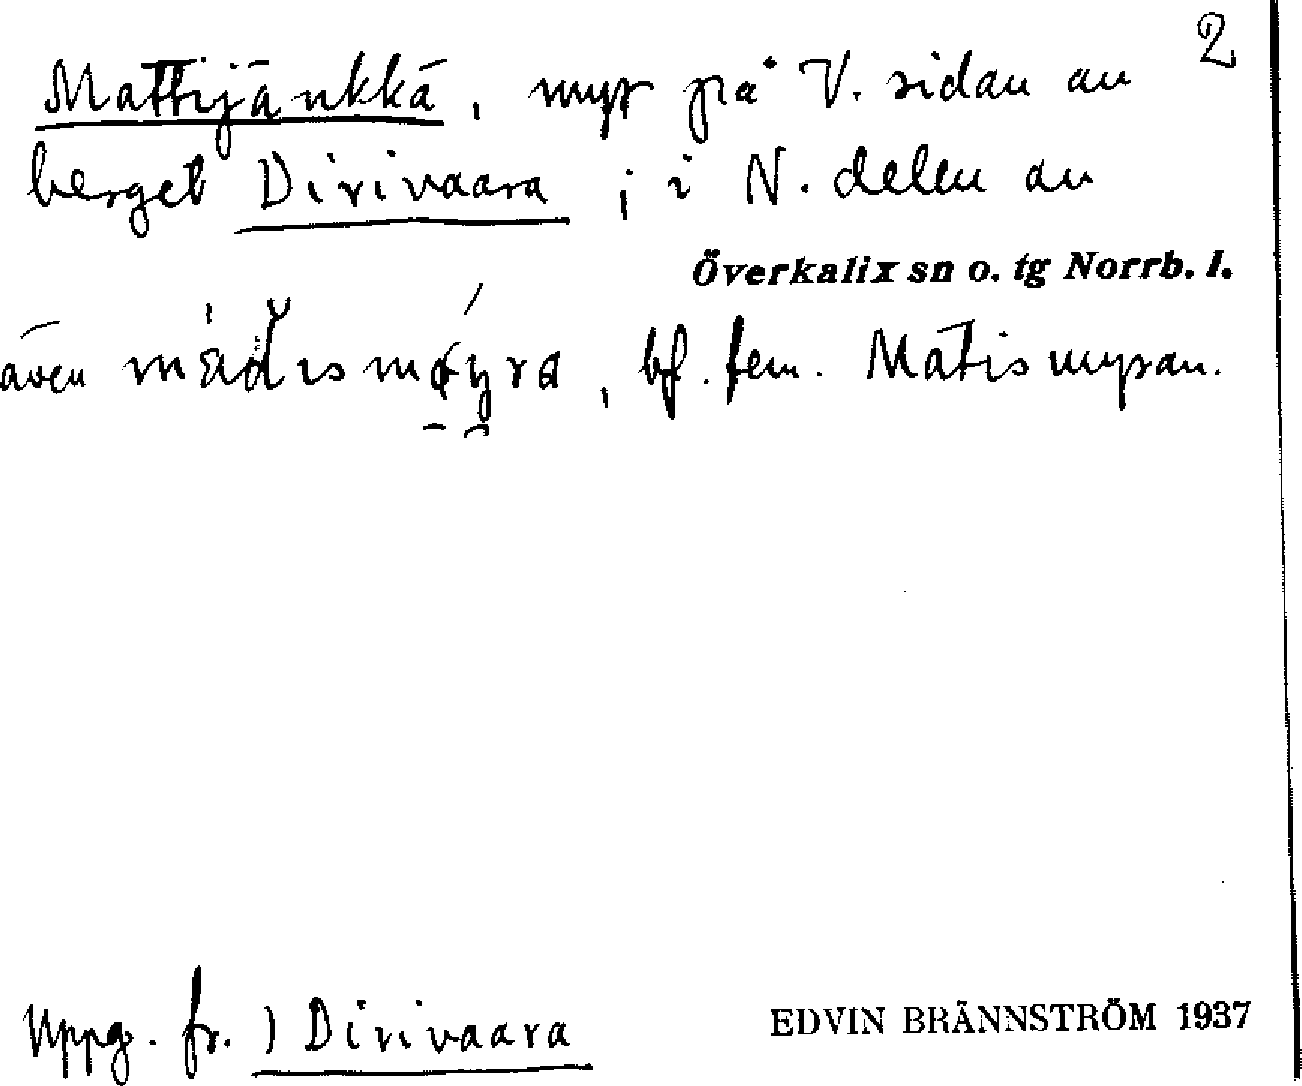 2
Mattijänkkä, myr på V. sidan av
berget Dirivaara ; i N. delen av
Överkalix sn o. tg Norrb. l.
även , bf. fem. Matismyran.
Uppg. fr. ) Dirivaara
EDVIN BRÄNNSTRÖM 1937